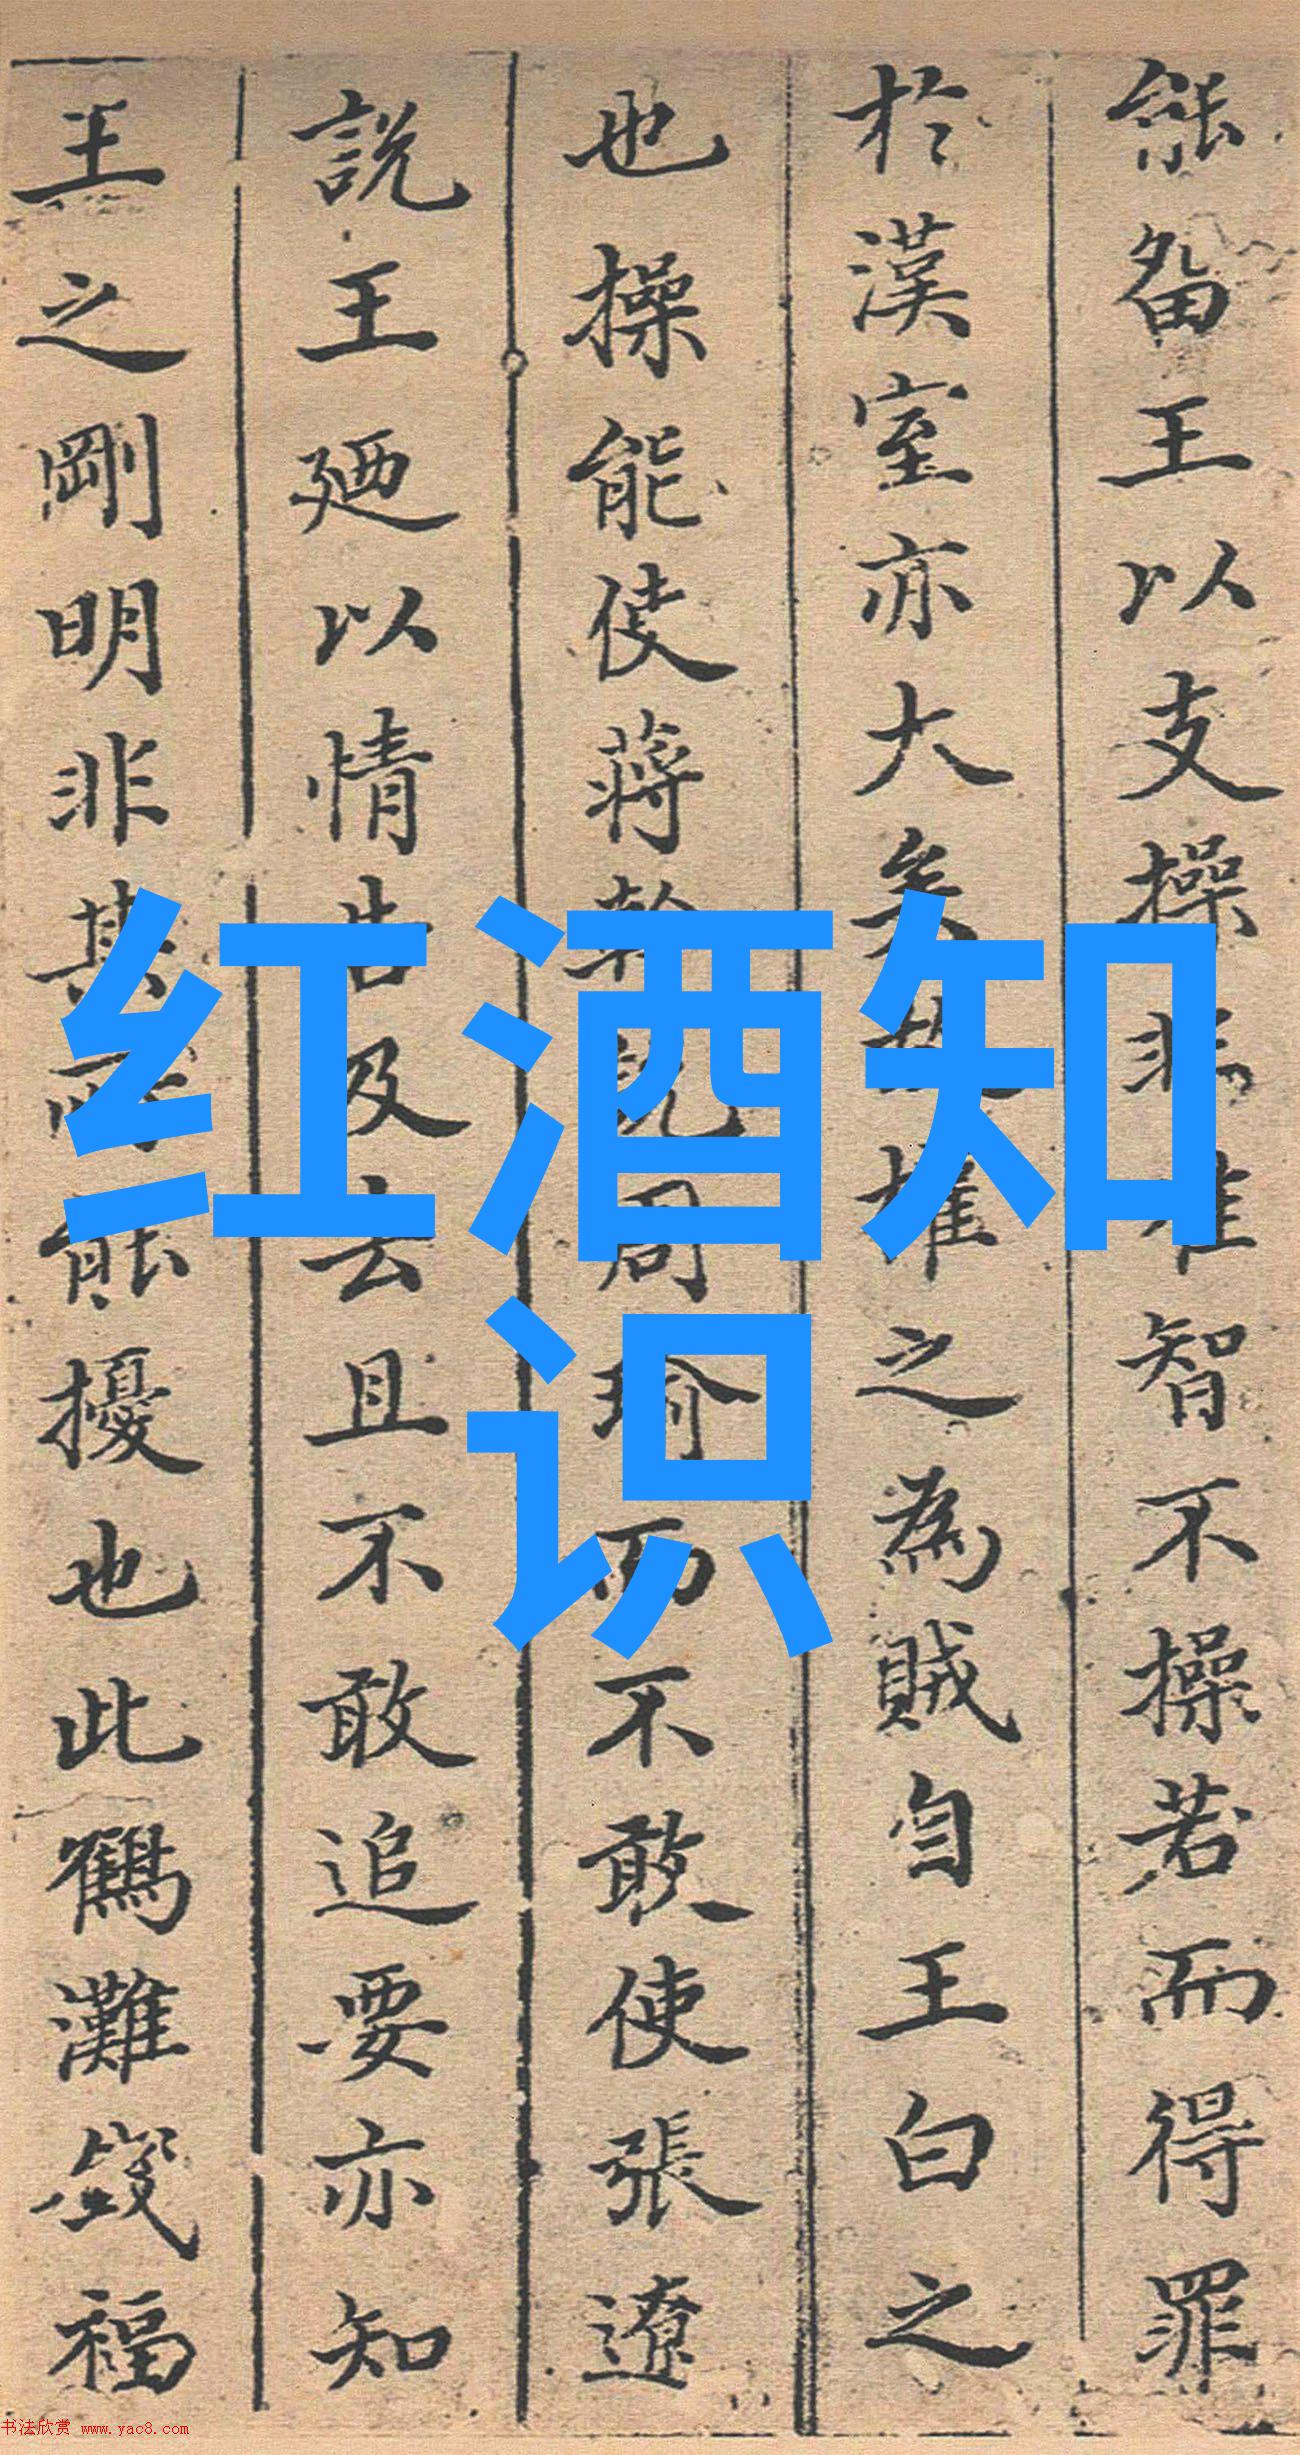 能畱王以支操非惟智不操若而得罪
於漢室亦大矣故權之為賊自王白之
也操能使蔣幹說周瑜而不敢使張遼
說王廼以情告及去且不敢追要亦知
王之剛明非其所能擾也此鶴灘歛福
红酒知
识
书法欣赏 www.yac8.com